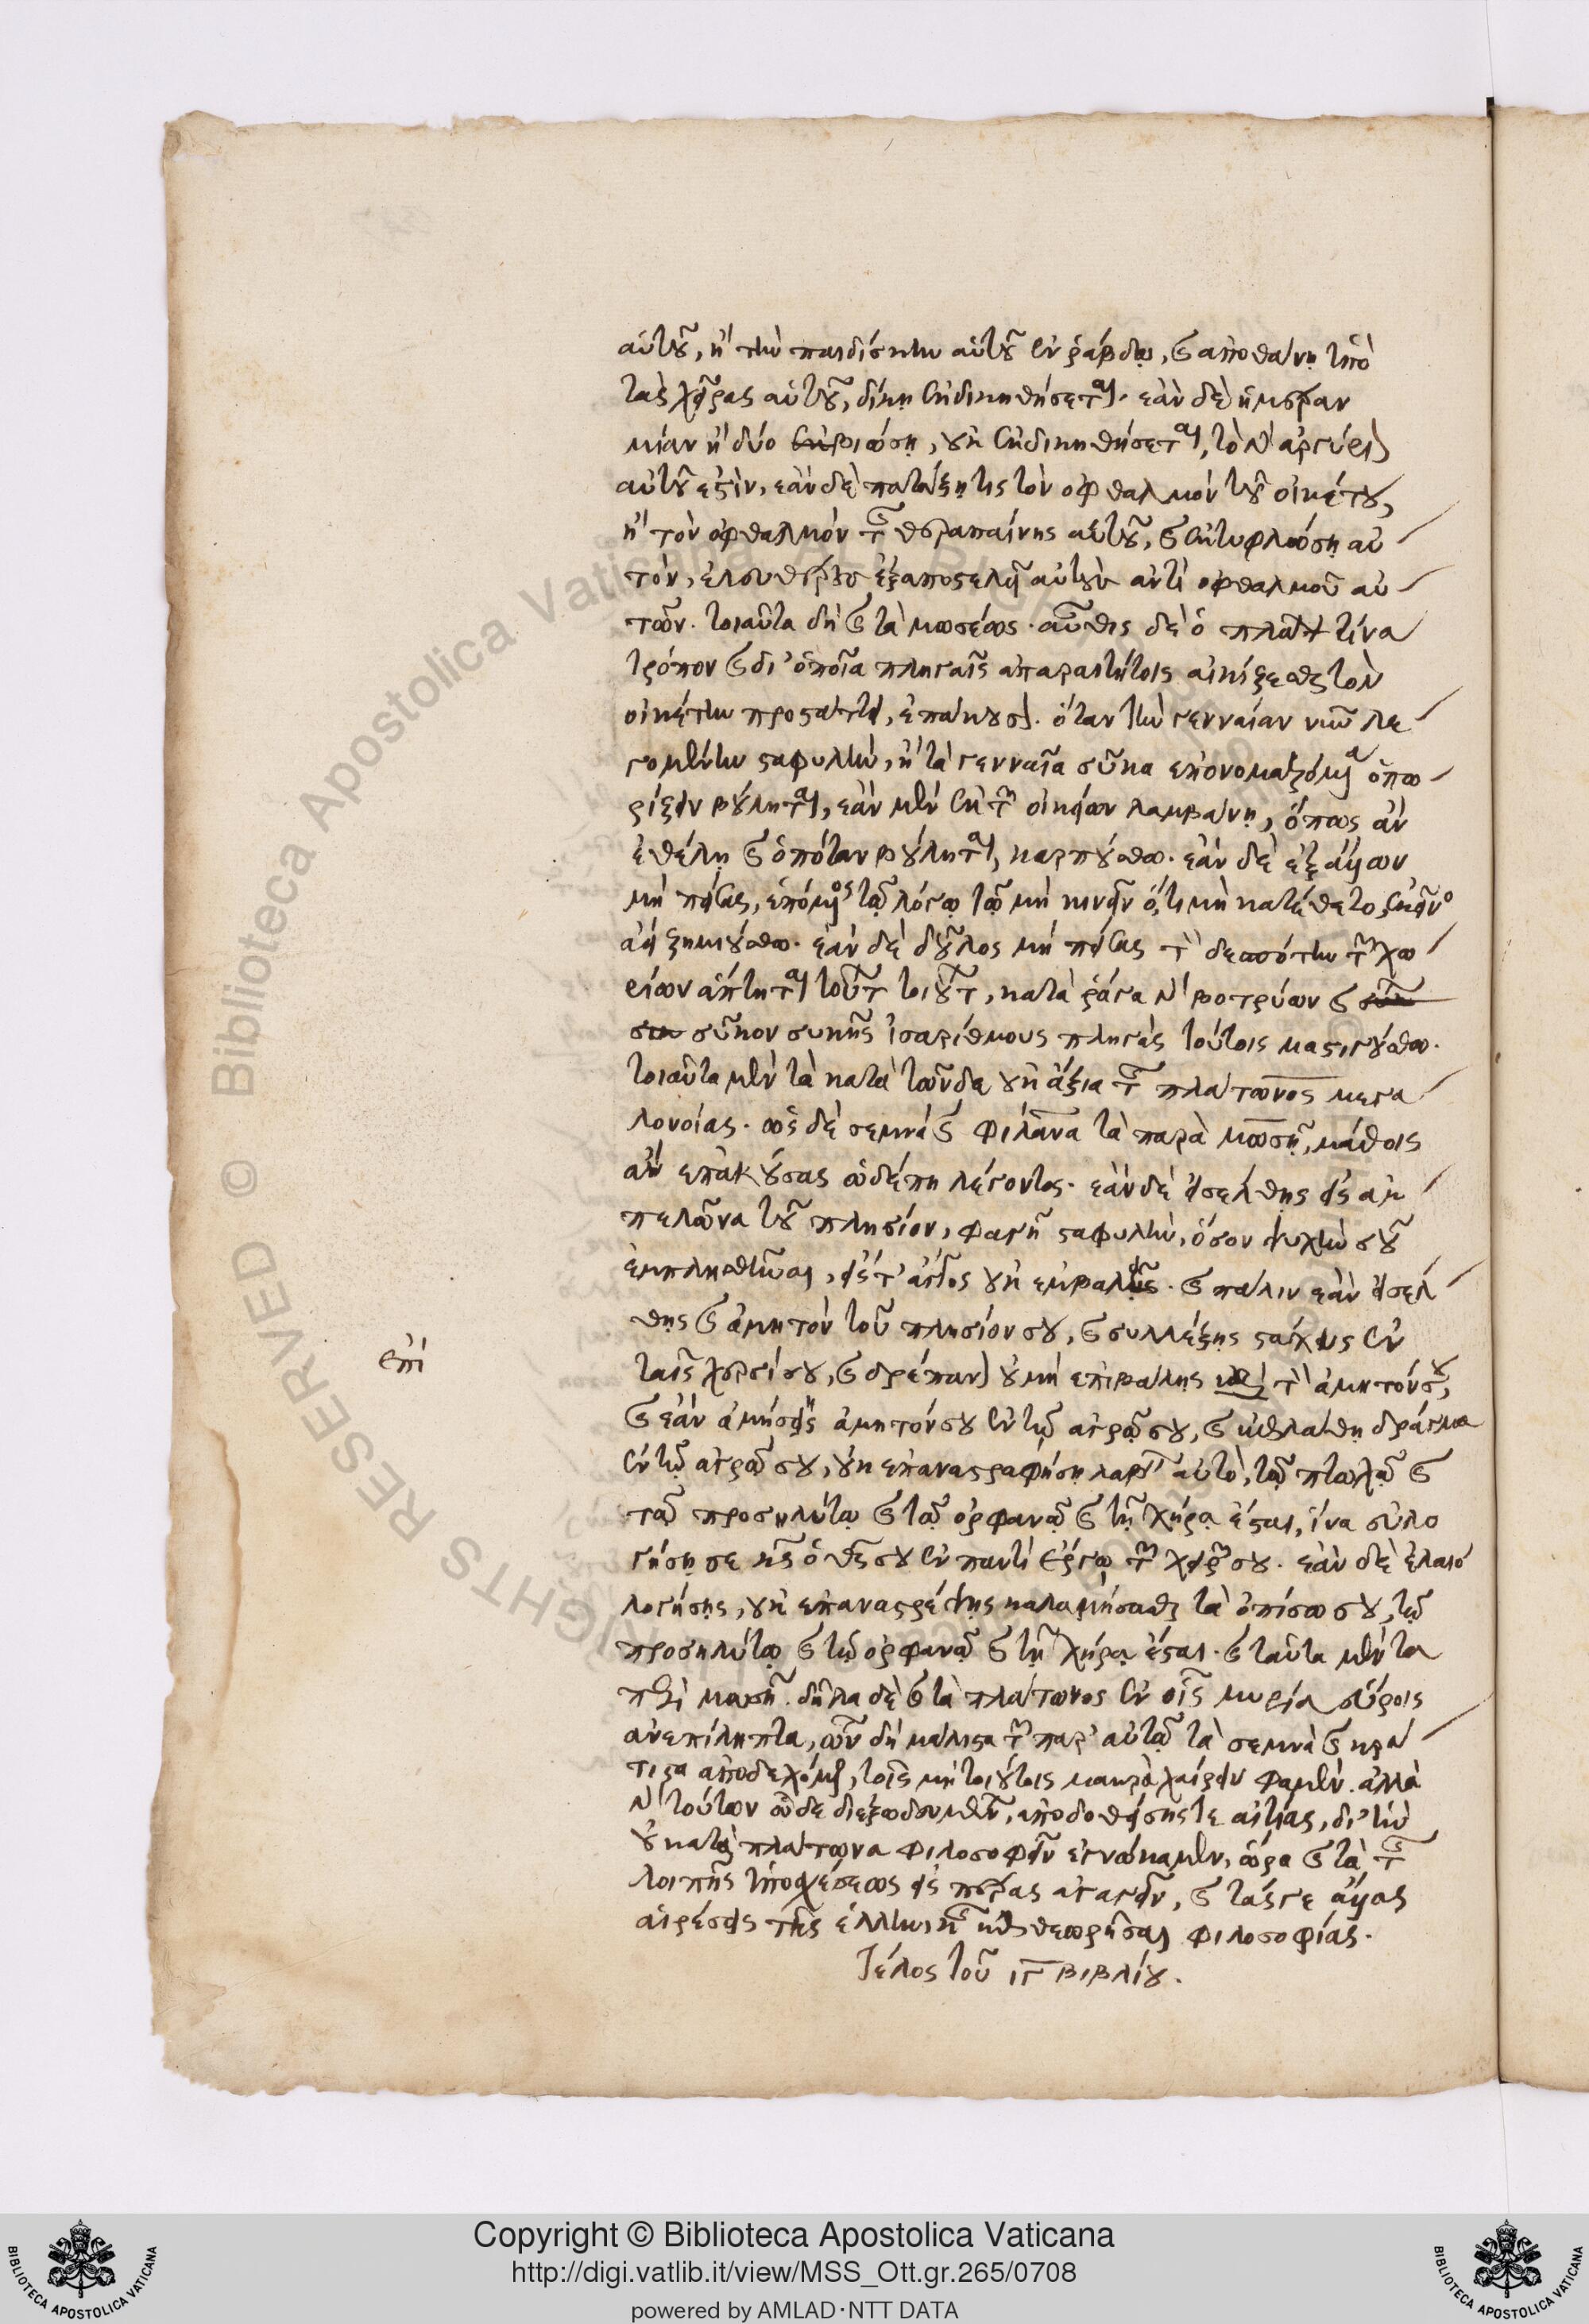 αὐτοῦ, ἢ τὴν παιδίσκην αὐτοῦ ἐν ῥάβδῳ, καὶ ἀποθάνῃ ὑπὸ
τὰς χεῖρας αὐτοῦ, δίκῃ ἐκδικηθήσεται. ἐὰν δὲ ἡμέραν
μίαν ἢ δύο ἐκβιώσῃ, οὐκ ἐκδικηθήσεται, τὸ γὰρ ἀργύριον
αὐτοῦ ἐστὶν, ἐὰν δὲ πατάξῃ τις τὸν ὀφθαλμὸν τοῦ οἰκέτου,
ἢ τὸν ὀφθαλμὸν τῆς θεραπαίνης αὐτοῦ, καὶ ἐκτυφλώσῃ αὐ
τὸν, ἐλευθέρους ἐξαποστελεῖ αὐτοὺς ἀντὶ ὀφθαλμοῦ αὐ
τῶν. τοιαῦτα δὴ καὶ τὰ μωσέως. αὖθις δὲ ὁ πλάτων τίνα
τρόπον καὶ δι' ὁποῖα πληγαῖς ἀπαραιτήτοις αἰκίζεσθαι τὸν
οἰκέτην προστάττει, ἐπάκουσον. ὅταν τὴν γενναίαν νῦν λε
γομένην σταφυλὴν, ἢ τὰ γενναῖα σῦκα ἐπονομαζόμενα ὀπω
ρίζειν βούληται, ἐὰν μὲν ἐκ τῶν οἰκείων λαμβάνῃ, ὅπως ἂν
ἐθέλῃ καὶ ὁπόταν βούληται, καρπούσθω. ἐὰν δὲ ἐξ ἄλλων
μὴ πείσας, ἑπόμενος τῷ λόγῳ τῷ μὴ κινεῖν ὅ,τι μὴ κατέθετο, ἐκεῖνο
ἀεὶ ζημιούσθω. ἐὰν δὲ δοῦλος μὴ πείσας τὸν δεσπότην τῶν χω
ρίων ἅπτηται τοῦ τῶν τοιούτων, κατὰ ῥάγα βοτρύων καὶ
σῦκον συκῆς ἰσαρίθμους πληγὰς τούτοις μαστιγούσθω.
τοιαῦτα μὲν τὰ κατὰ τῶνδε οὐκ ἄξια τῆς πλάτωνος μεγα
λονοίας. ὡς δὲ σεμνὰ καὶ φιλάνα τὰ παρὰ μωσῇ, μάθοις
ἂν ἐπακούσας ὡδέπη λέγοντος. ἐὰν δὲ εἰσέλθῃς εἰς ἀμ
πελῶνα τοῦ πλησίον, φαγῇ σταφυλὴν, ὅσον ψυχήν σου
ἐμπλησθῆναι, εἰς τὸ ἄγγος οὐκ ἐμβαλεῖς. καὶ πάλιν ἐὰν εἰσέλ
θῃς καὶ ἀμητὸν τοῦ πλησίον σου, καὶ συλλέξῃς στάχυς ἐν
ἐπὶ
ταῖς χερσί σου, καὶ δρέπανον οὐ μὴ ἐπιβάλῃς τὸν ἀμητόν σου,
καὶ ἐὰν ἀμήσῃς ἀμητόν σου ἐν τῷ ἀγρῷ σου, καὶ ἐπιλάθῃ δράγμα
ἐν τῷ ἀγρῷ σου, οὐκ ἐπαναστραφήσῃ λαβεῖν αὐτὸ, τῷ πτωχῷ καὶ
τῷ προσηλύτῳ καὶ τῷ ὀρφανῷ καὶ τῇ χήρᾳ ἔσται, ἵνα εὐλο
γήσῃ σε κς ὁ θς σου ἐν παντὶ ἔργῳ τῶν χειρῶν σου. ἐὰν δὲ ἐλαιο
λογήσῃς, οὐκ ἐπαναστρέψῃς καλαμήσασθαι τὰ ὀπίσω σου, τῷ
προσηλύτῳ καὶ τῷ ὀρφανῷ καὶ τῇ χήρᾳ ἔσται. καὶ ταῦτα μὲν τὰ
περὶ μωσῇ. δῆλα δὲ καὶ τὰ πλάτωνος ἐν οἷς μυρία εὕροις
ἀνεπίληπτα, ὧν δὴ μάλιστα τῶν παρ' αὐτῷ τὰ σεμνὰ καὶ κρά
τιστα ἀποδεχόμενοι, τοῖς μὴ τοιούτοις μακρὰ χαίρειν φαμὲν. ἀλλὰ
γὰρ τούτων ὧδε διεξωδευμένων, ἀποδοθείσης τε αἰτίας, δι' ἣν
οὐ κατὰ πλάτωνα φιλοσοφεῖν ἐγνώκαμεν, ὥρα καὶ τὰ τῆς
λοιπῆς ὑποσχέσεως εἰς πέρας ἀγαγεῖν, καὶ τάς γε ἄλλας
αἱρέσεις τῆς ἑλληνικῆς ἐπιθεωρῆσαι φιλοσοφίας.
τέλος τοῦ ιγ βιβλίου.
Copyright © Biblioteca Apostolica Vaticana
http://digi.vatlib.it/view/MSS_Ott.gr.265/0708
powered by AMLAD·NTT DATA